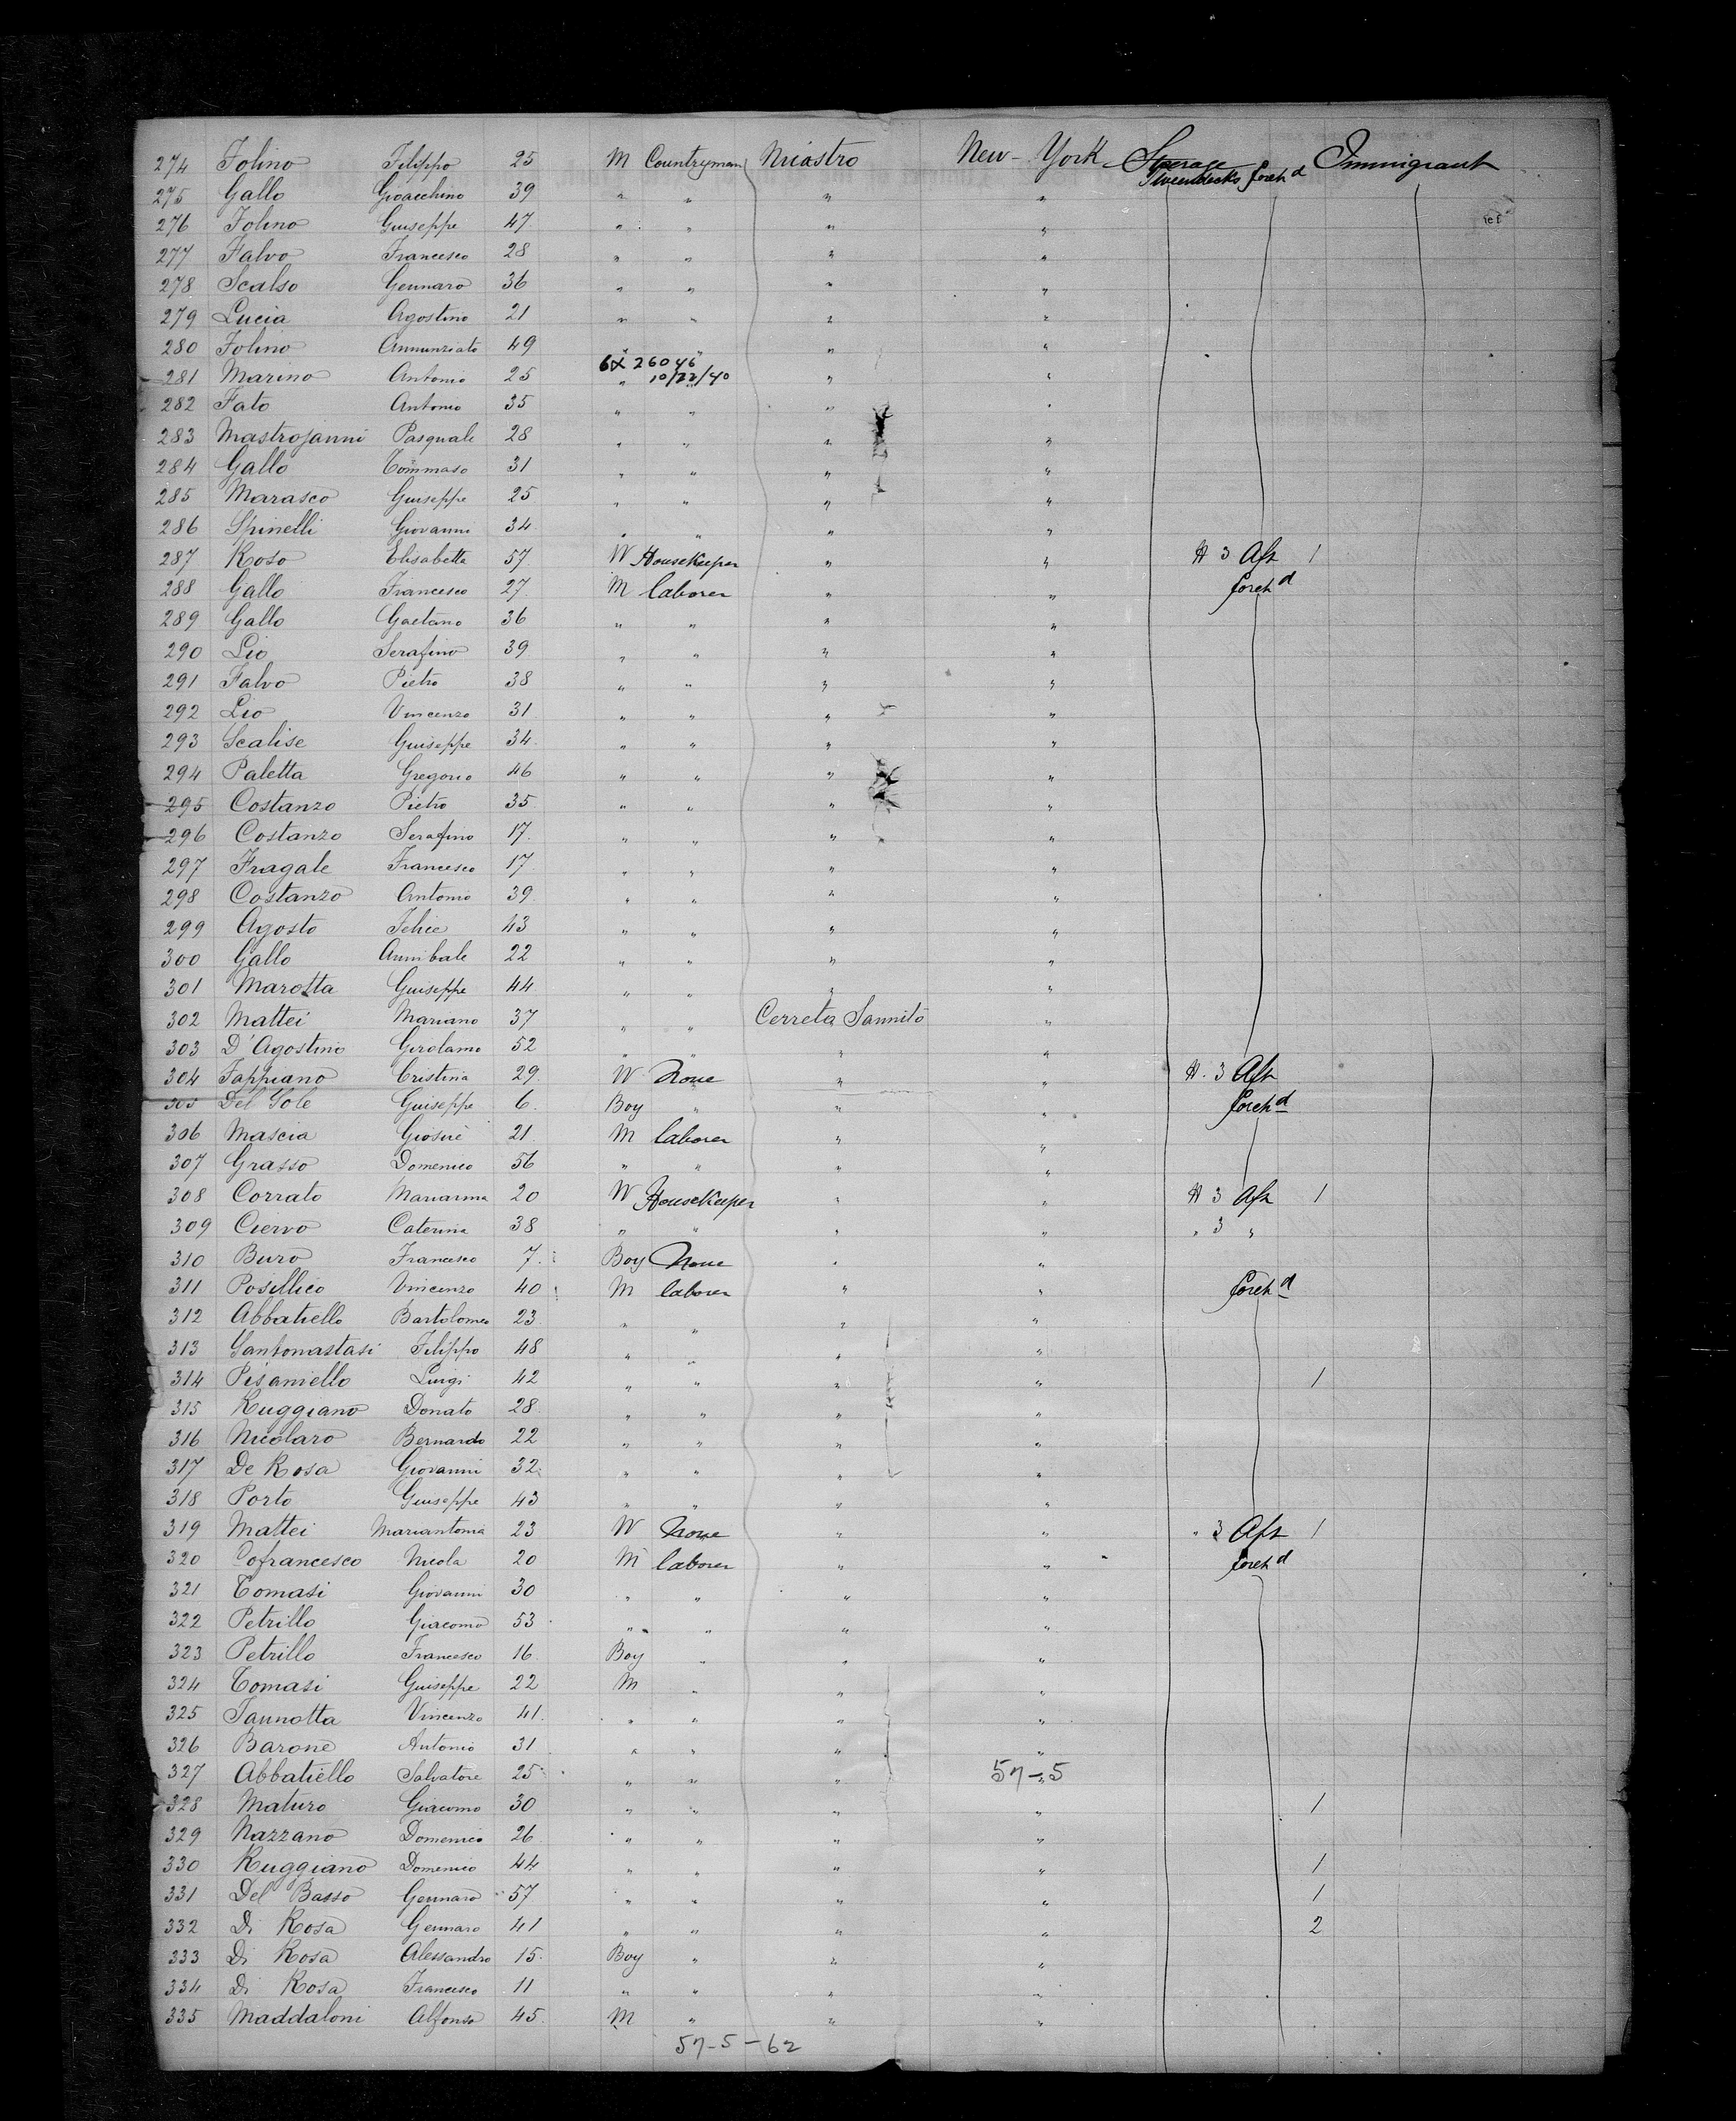 274 Folino Filippo 25 M Countryman Miastro New-York Steerage Tweendecks foreh d Immigrant
275 Gallo Gioacchino 39 " " " "
276 Folino Giuseppe 47 " " " "
277 Falvo Francesco 28 " " " "
278 Scalso Gennaro 36 " " " "
279 Lucia Agostino 21 " " " "
280 Folino Annunziato 49 " " " "
6X 26046
281 Marino Antonio 25 " 10/22/40 " "
282 Fato Antonio 35 " " " "
283 Mastrojanni Pasquale 28 " " " "
284 Gallo Tommaso 31 " " " "
285 Marasco Giuseppe 25 " " " "
286 Spinelli Giovanni 34 " " " "
287 Roso Elisabetta 57 W Housekeeper " " H 3 Aft 1
288 Gallo Francesco 27 M laborer " " foreh d
289 Gallo Gaetano 36 " " " "
290 Lio Serafino 39 " " " "
291 Falvo Pietro 38 " " " "
292 Lio Vincenzo 31 " " " "
293 Scalise Giuseppe 34 " " " "
294 Paletta Gregorio 46 " " " "
295 Costanzo Pietro 35 " " " "
296 Costanzo Serafino 17 " " " "
297 Fragale Francesco 17 " " " "
298 Costanzo Antonio 39 " " " "
299 Agosto Felice 43 " " " "
300 Gallo Annibale 22 " " " "
301 Marotta Giuseppe 44 " " " "
302 Mattei Mariano 37 " " Cerreta Sannito "
303 D'Agostino Girolamo 52 " " " "
304 Fappiano Cristina 29 W None " " H. 3 Aft
305 Del Sole Giuseppe 6 Boy " " " foreh d
306 Mascia Giosuè 21 M laborer " "
307 Grasso Domenico 56 " " " "
308 Corrato Marianna 20 W Housekeeper " " H 3 Aft 1
309 Ciervo Caterina 38 " " " " " 3 "
310 Buro Francesco 7 Boy None " "
311 Posillico Vincenzo 40 M laborer " " foreh d
312 Abbatiello Bartolomeo 23 " " " "
313 Santonastasi Filippo 48 " " " "
314 Pisaniello Luigi 42 " " " " 1
315 Ruggiano Donato 28 " " " "
316 Nicolaro Bernardo 22 " " " "
317 De Rosa Giovanni 32 " " " "
318 Porto Giuseppe 43 " " " "
319 Mattei Mariantonia 23 W None " " " 3 Aft 1
320 Cofrancesco Nicola 20 M laborer " " foreh d
321 Tomasi Giovanni 30 " " " "
322 Petrillo Giacomo 53 " " " "
323 Petrillo Francesco 16 Boy " " "
324 Tomasi Giuseppe 22 M " " "
325 Iannotta Vincenzo 41 " " " "
326 Barone Antonio 31 " " " "
327 Abbatiello Salvatore 25 " " " 57-5
328 Maturo Giacomo 30 " " " " 1
329 Nazzano Domenico 26 " " " "
330 Ruggiano Domenico 44 " " " " 1
331 Del Basso Gennaro 57 " " " " 1
332 Di Rosa Gennaro 41 " " " " 2
333 Di Rosa Alessandro 15 Boy " " "
334 Di Rosa Francesco 11 " " " "
335 Maddaloni Alfonso 45 M " " "
57-5-62